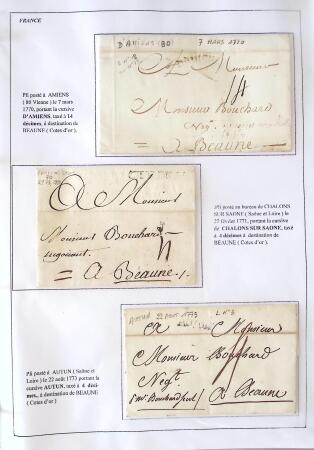 FRANCE
Pli posté à AMIENS
( 80 Vienne ) le 7 mars
1770, portant la cursive
D'AMIENS, taxé à 14
décimes, à destination de
BEAUNE ( Cotes d'or ).
D'AMIENS (80)
7 MARS 1770
A Monsieur
Monsieur Bouchard
Neg.t
à Beaune
A Monsieur
Monsieur Bouchard
negociant
= à Beaune
Pli posté au bureau de CHALONS
SUR SAONE ( Saône et Loire ) le
22 février 1771, portant la cursive
de CHALONS SUR SAONE, taxé
à 4 décimes à destination de
BEAUNE ( Cote d'or ).
Pli posté à AUTUN ( Saône et
Loire ) le 22 août 1773 portant la
cursive AUTUN, taxé à 4 déci-
mes., à destination de BEAUNE
( Cotes d'or )
AUTUN 22 AOUT 1773
L N°3
A Monsieur
Monsieur Bouchard
Neg.t
à Beaune